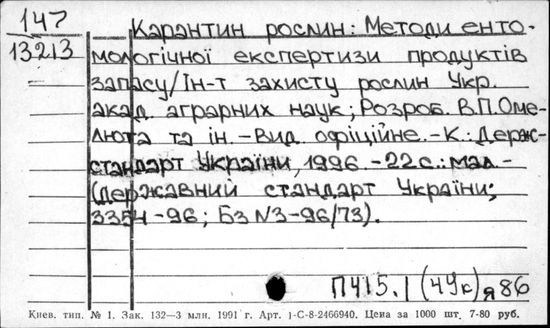 147
13213
Карантин рослин: Методи енто-
мологічної експертизи продуктів
запасу/Ін-т захисту рослин Укр.
акад. аграрних наук; Розроб. В.П.Оме-
люта та ін. – Вид. офіційне. – К.: Держ-
стандарт України, 1996. – 22 с.: мал. –
(Державний стандарт України;
3354 – 96; Бз N3–96/73).
П415.1 (4Ук)я86
Киев. тип. № 1. Зак. 132—3 млн. 1991 г. Арт. 1-С-8-2466940. Цена за 1000 шт. 7-80 руб.